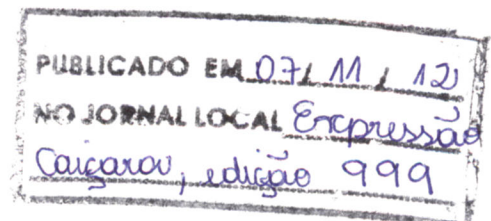 PUBLICADO EM 07/ 11 / 12
NO JORNAL LOCAL Expressão
Caiçara, edição 999